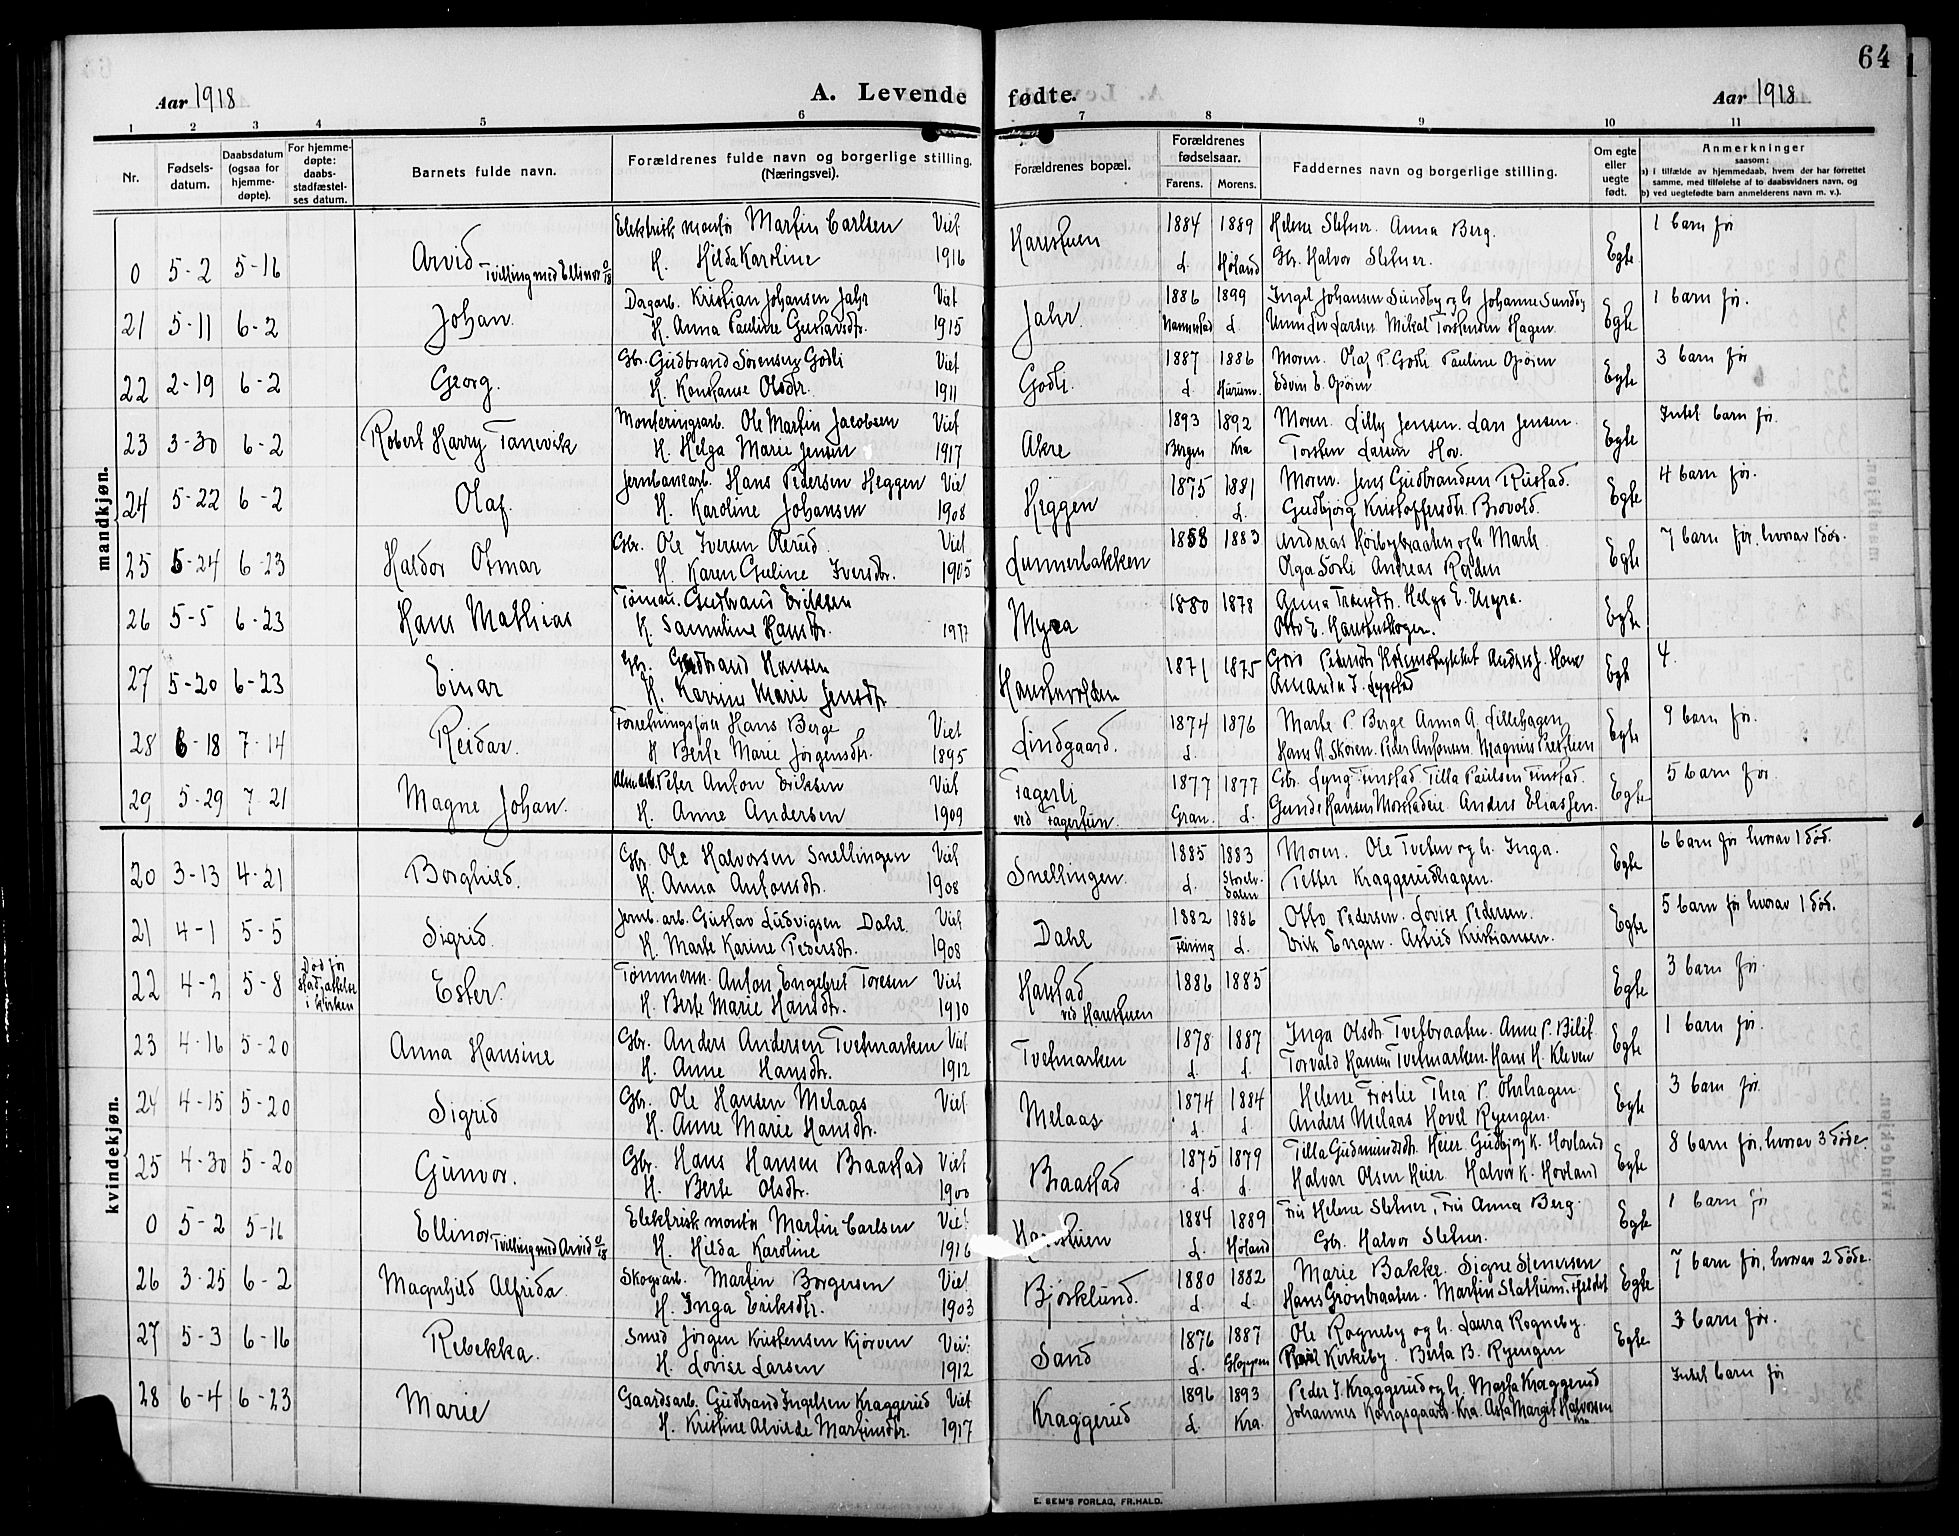 64
Aar 1918 A. Levende fødte. Aar 1918
1 2 3 4 5 6 7 8 9 10 11
Nr. Fødsels-datum. Daabsdatum (ogsaa for hjemme-døpte). For hjemme-døpte: daabs-stadfæstel-ses datum. Barnets fulde navn. Forældrenes fulde navn og borgerlige stilling. (Næringsvei). Forældrenes bopæl. Forældrenes fødselsaar. Farens. Morens. Faddernes navn og borgerlige stilling. Om egte eller uegte født. Anmerkninger saasom: a) i tilfælde av hjemmedaab, hvem der har forrettet samme, med tilføielse af to daabsvidners navn, og b) ved uegtefødte barn anmelderens navn m. v.).
mandkjøn.
Elektrisk montør Martin Carlsen Viet 1884 1889 Helene Sletner. Anna Berg. 1 barn før
0 5-2 5-16 Arvid Tvilling med Ellinor 0/18 H. Hilda Karoline 1916 Harestuen d. Høland Gbr. Halvor Sletner. Egte
Dagarb. Kristian Johansen Jahr Viet 1886 1899 Ingel Johansen Sundby og h. Johanne Sundby 1 barn før.
21 5-11 6-2 Johan. H. Anna Pauline Gustavsdtr. 1915 Jahr. Nannestad d. Larsen Mikal Torstensen Hagen. Egte
Gbr. Gudbrand Sørensen Godli Viet 1887 1886 Moren. Olaf P. Godli Pauline Opøien 3 barn før
22 2-19 6-2 Georg. H. Konstanse Olsdtr. 1911 Godli. d. Hurum. Edvin E. Opøien Egte
Monteringsarb. Ole Martin Jacobsen Viet 1893 1892 Moren. Lilly Jensen. Jensen. Intet barn før.
23 3-30 6-2 Robert Harry Tanevik H. Helga Marie Jensen 1917 Akre Bergen Kra Torsten Larsen Hov. Egte
Jernbanearb. Hans Pedersen Heggen Viet 1875 1881 Moren. Jens Gudbrandsen Rustad. 4 barn før.
24 5-22 6-2 Olaf. H. Karoline Johansen 1908 Heggen d. Gudbjørg Kristoffersdtr. Brovold. Egte
Gbr. Ole Iversen Olerud Viet 1858 1883 Andreas Hørbybraaten og h. Marte 7 barn før, hvorav 1 død.
25 5-24 6-23 Haldor Otmar H. Karen Guline Iversdtr. 1905 Lunnerbakken Olga Sørli Andreas Roiden Egte
Tømmerm. Gudbrand Eriksen 1880 1878 Anna Helge E. Myra.
26 5-5 6-23 Hans Mathias H. Hansdtr. 1917 Myra Otto E. Egte
Gbr. Gudbrand Hansen 1871 1875 Pedersdtr. Anders J. 4.
27 5-20 6-23 Einar H. Karine Marie Jensdtr Amanda J. Lygstad Egte
Forretningsfører Hans Berge Viet 1874 1876 Marte P. Berge Anna A. Lillehagen 9 barn før.
28 6-18 7-14 Reidar. H. Berte Marie Jørgensdtr. 1895 Lindgaard. d. Hans A. Skøien. Peder Antonsen. Magnus Egte
Peter Anton Eriksen Viet 1877 1877 Gbr. Lyng Tilla Paulsen 5 barn før.
29 5-29 7-21 Magne Johan. H. Anne Andersen 1909 Fagerli ved Fagertun. Gran. d. Hansen Anders Eliassen. Egte
kvindekjøn.
Gbr. Ole Halvorsen Snellingen Viet 1885 1883 Moren. Ole Tveten og h. Inga. 6 barn før hvorav 1 død.
20 3-13 4-21 Borghild. H. Anna Antonsdtr. 1908 Snellingen. d. Storelvdalen Petter Kraggerudhagen. Egte
Jernb.arb. Gustav Ludvigsen Dahl Viet 1882 1886 Otto Pedersen. Lovise Pedersen. 5 barn før hvorav 1 død.
21 4-1 5-5 Sigrid. H. Marte Karine Pedersdtr. 1908 Dahl Feiring d. Erik Engen. Astrid Kristiansen. Egte
Tømmerm. Anton Engebret Toresen Viet 1886 1885 3 barn før.
22 4-2 5-8 Død før i Kirken Ester. H. Berte Marie Hansdtr. 1910 Harstad ved Harestuen Egte
Gbr. Anders Andersen Tvetmarken Viet 1878 1887 Inga Olsdtr. Tvetbraaten. Anne P. Bilit 1 barn før.
23 4-16 5-20 Anna Hansine H. Anne Hansdtr. 1912 Tvetmarken d. d. Torvald Hansen Tvetmarken. Hans H. Kleven Egte
Gbr. Ole Hansen Melaas Viet 1874 1884 Helene Frøslie Thea P. Ohrhagen. 3 barn før.
24 4-15 5-20 Sigrid H. Anne Marie Hansdtr. Melaas d. d. Anders Melaas Hovel Ryengen. Egte
Gbr. Hans Hansen Braastad Viet 1875 1879 Tilla Gudmundsdtr. Heier. Gudbjørg K. Hovland 8 barn før, hvorav 3 døde.
25 4-30 5-20 Gunvor. H. Berte Olsdtr. 1900 Braastad d. d. Halvor Olsen Heier Halvor K. Hovland Egte
Elektrisk montør Martin Carlsen Viet 1884 1889 Fru Helene Sletner, Fru Anna Berg. 1 barn før
0 5-2 5-16 Ellinor Tvilling med Arvid 0/18 H. Hilda Karoline 1916 Harestuen d. Høland Gbr. Halvor Sletner. Egte
Skogsarb. Martin Borgersen Viet 1880 1882 Marie Bakke. Signe Stenersen 7 barn før, hvorav 2 døde.
26 3-25 6-2 Magnhild Alfrida. H. Inga Eriksdtr. 1903 Bjørklund. d. d. Hans Grønbraaten. Martin Egte
Smed Jørgen Kristensen Kjørven Viet 1876 1887 Ole Rogneby og h. Laura Rogneby. 3 barn før.
27 5-3 6-16 Rebekka. H. Lovise Larsen 1912 Sand d. Gloppen Kirkeby. Berta B. Ryengen Egte
Gaardsarb. Gudbrand Ingelsen Kraggerud Viet 1896 1893 Peder I. Kraggerud og h. Marta Kraggerud Intet barn før
28 6-4 6-23 Marie H. Kristine Alvilde Martinsdtr. 1917 Kraggerud d. Kra. Johannes Kongsgaard. Kra. Asta Margit Halvorsen Kra
E. SEM'S FORLAG, FR.HALD.